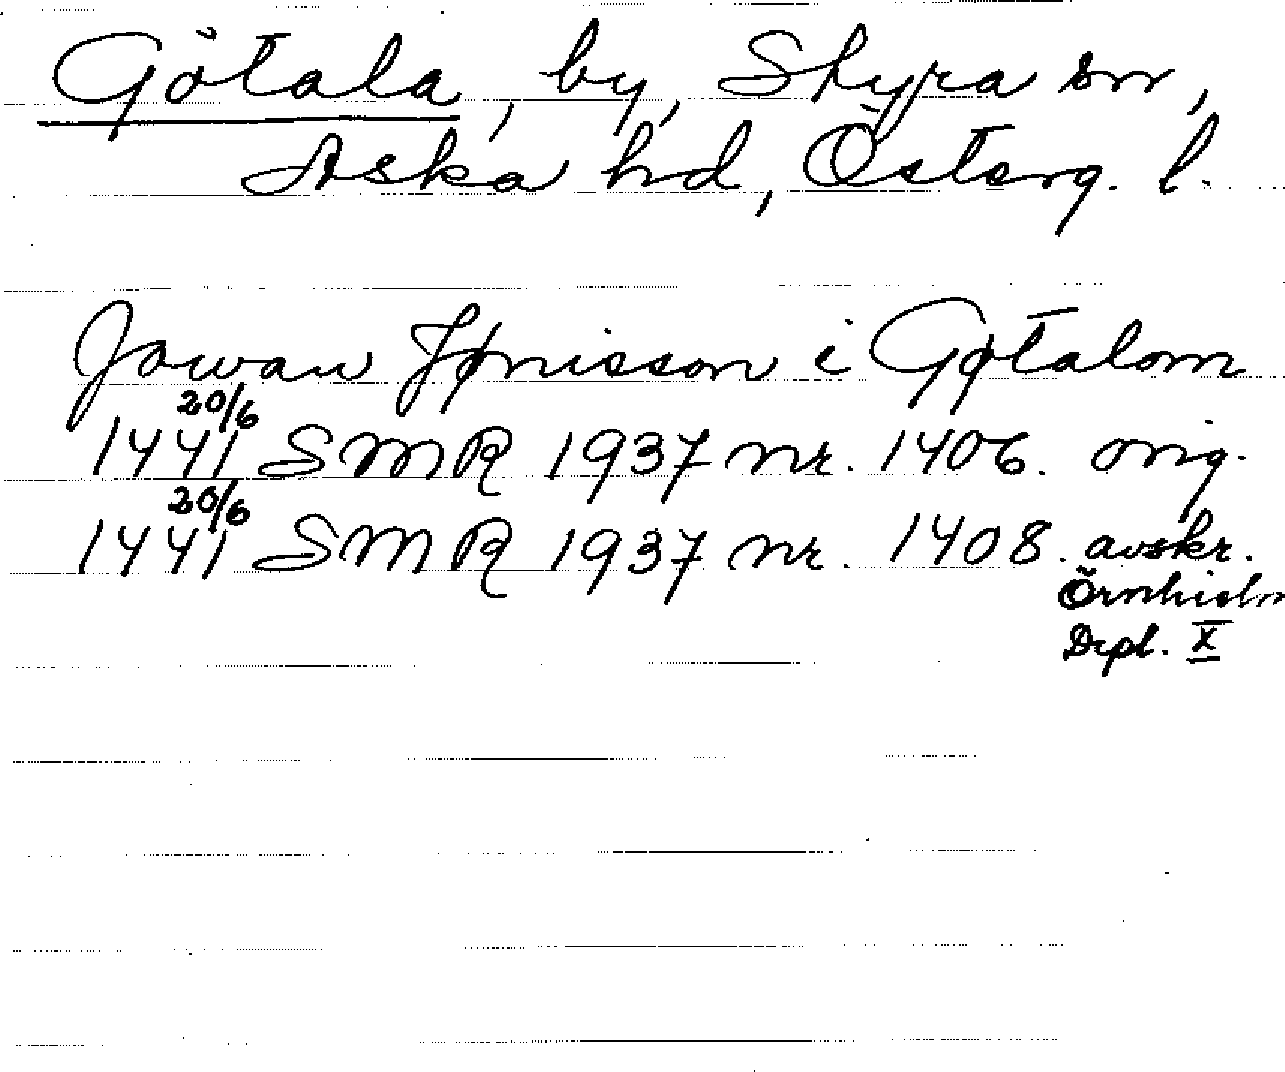 Götala, by, Styra sn,
Aska hd, Österg. l.
Jowan Jønisson i Gøtalom
1441 20/6 SMR 1937 nr. 1406. orig.
1441 20/6 SMR 1937 nr. 1408. avskr.
Örnhielm
Dipl. X